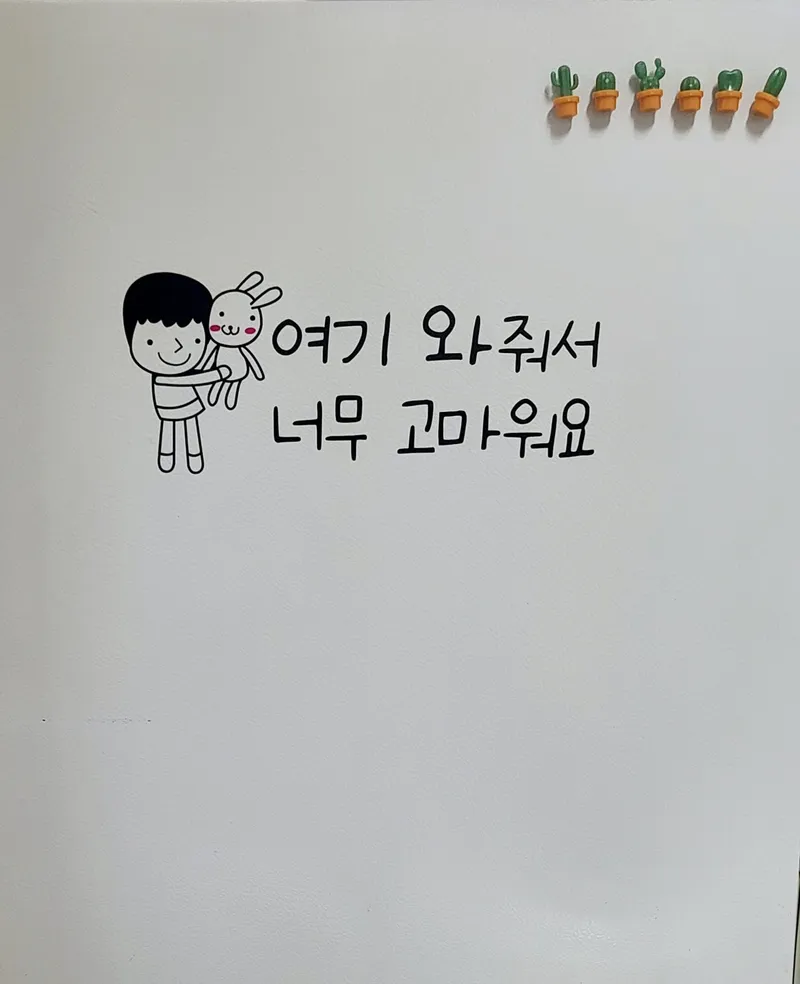 여기 와줘서
너무 고마워요